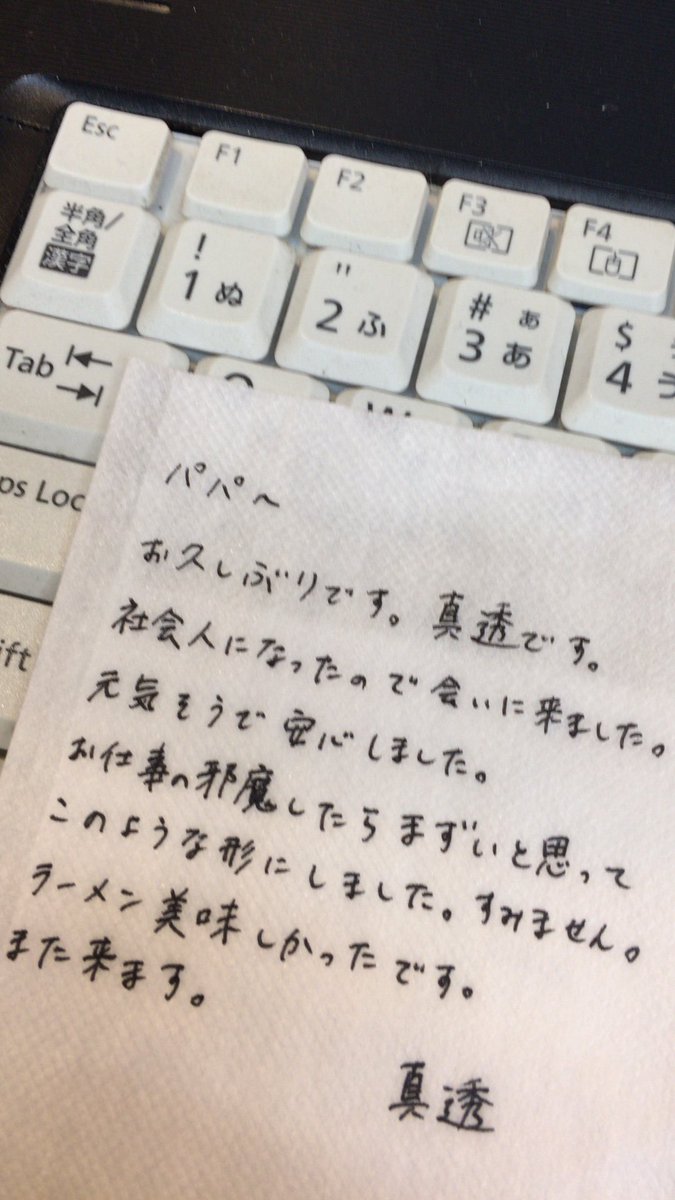 Esc F1 F2 F3 F4
半角/ ! " # ぁ $
全角 1 ぬ 2 ふ 3 あ 4
漢字
Tab
ps Loc
ift
パパへ
お久しぶりです。真透です。
社会人になったので会いに来ました。
元気そうで安心しました。
お仕事の邪魔したらまずいと思って
このような形にしました。すみません。
ラーメン美味しかったです。
また来ます。
真透